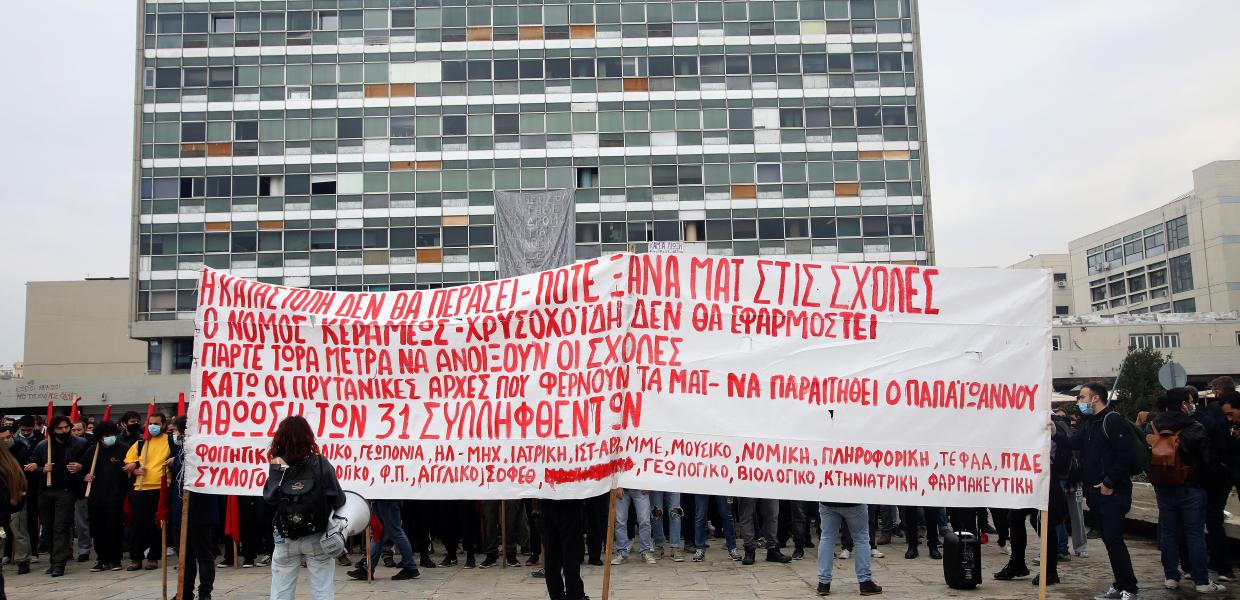 Η ΚΑΤΑΣΤΟΛΗ ΔΕΝ ΘΑ ΠΕΡΑΣΕΙ - ΠΟΤΕ ΞΑΝΑ ΜΑΤ ΣΤΙΣ ΣΧΟΛΕΣ
Ο ΝΟΜΟΣ ΚΕΡΑΜΕΩΣ - ΧΡΥΣΟΧΟΪΔΗ ΔΕΝ ΘΑ ΕΦΑΡΜΟΣΤΕΙ
ΠΑΡΤΕ ΤΩΡΑ ΜΕΤΡΑ ΝΑ ΑΝΟΙΞΟΥΝ ΟΙ ΣΧΟΛΕΣ
ΚΑΤΩ ΟΙ ΠΡΥΤΑΝΙΚΕΣ ΑΡΧΕΣ ΠΟΥ ΦΕΡΝΟΥΝ ΤΑ ΜΑΤ - ΝΑ ΠΑΡΑΙΤΗΘΕΙ Ο ΠΑΠΑΪΩΑΝΝΟΥ
ΑΘΩΩΣΗ ΤΩΝ 31 ΣΥΛΛΗΦΘΕΝΤΩΝ
ΦΟΙΤΗΤΙΚΟΙ ΓΕΩΠΟΝΙΑ, ΗΛ-ΜΗΧ, ΙΑΤΡΙΚΗ, ΙΣΤ-ΑΡΧ, ΜΜΕ, ΜΟΥΣΙΚΟ, ΝΟΜΙΚΗ, ΠΛΗΡΟΦΟΡΙΚΗ, ΤΕΦΑΑ, ΠΤΔΕ
ΣΥΛΛΟΓΟΙ Φ.Π., ΑΓΓΛΙΚΟ, ΣΟΦΕΘ, ΓΕΩΛΟΓΙΚΟ, ΒΙΟΛΟΓΙΚΟ, ΚΤΗΝΙΑΤΡΙΚΗ, ΦΑΡΜΑΚΕΥΤΙΚΗ